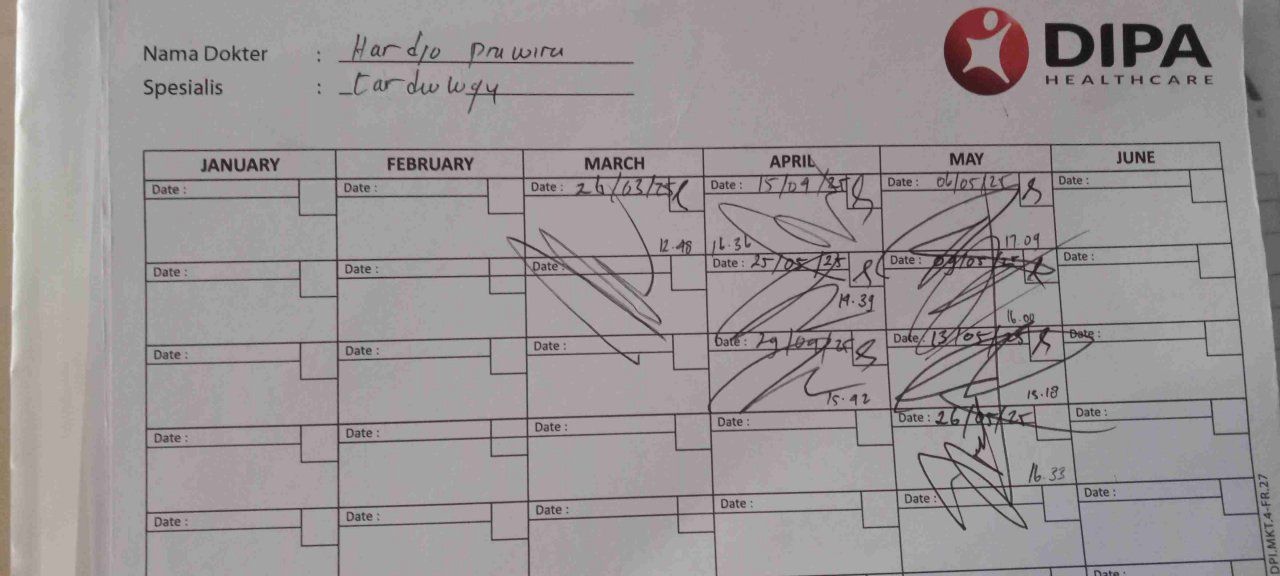 DIPA
HEALTHCARE
Nama Dokter : Hardjo Prawira
Spesialis : Cardiology
JANUARY FEBRUARY MARCH APRIL MAY JUNE
Date : Date : Date : 26/03/25 Date : 15/04/25 Date : 06/05/25 Date :
12.48 16.36 17.09
Date : Date : Date : Date : 25/05/25 Date : 09/05/25 Date :
14.39 16.00
Date : Date : Date : Date : 29/04/25 Date : 13/05/25 Date :
15.42 15.18
Date : Date : Date : Date : Date : 26/05/25 Date :
16.33
Date : Date : Date : Date : Date : Date :
Date :
DPI.MKT.4-FR.27